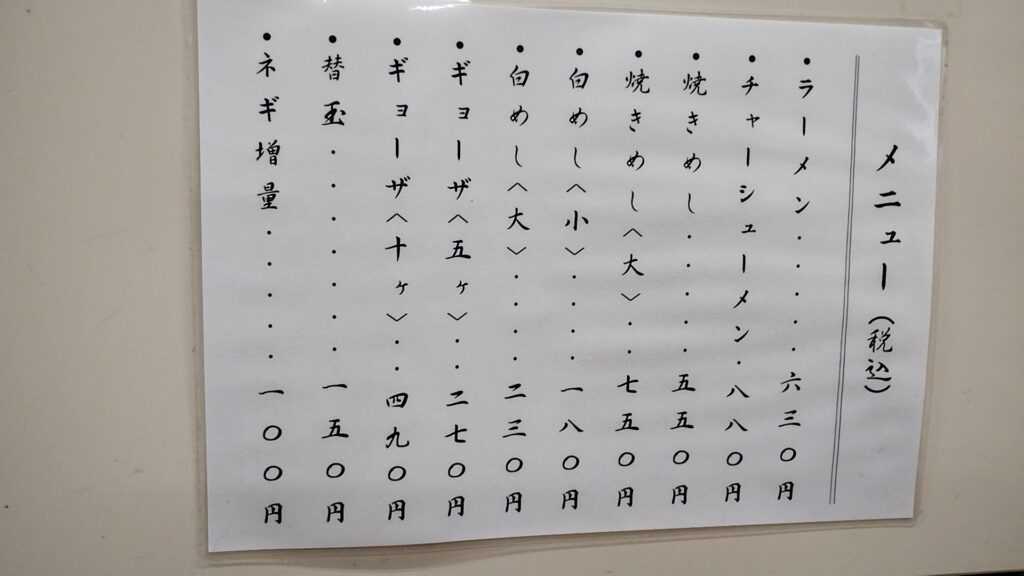 メニュー(税込)
・ラーメン・・・・・六三〇円
・チャーシューメン・八八〇円
・焼きめし・・・・・五五〇円
・焼きめし〈大〉・・七五〇円
・白めし〈小〉・・・・一八〇円
・白めし〈大〉・・・・二三〇円
・ギョーザ〈五ヶ〉・・二七〇円
・ギョーザ〈十ヶ〉・・四九〇円
・替玉・・・・・・・一五〇円
・ネギ増量・・・・・一〇〇円